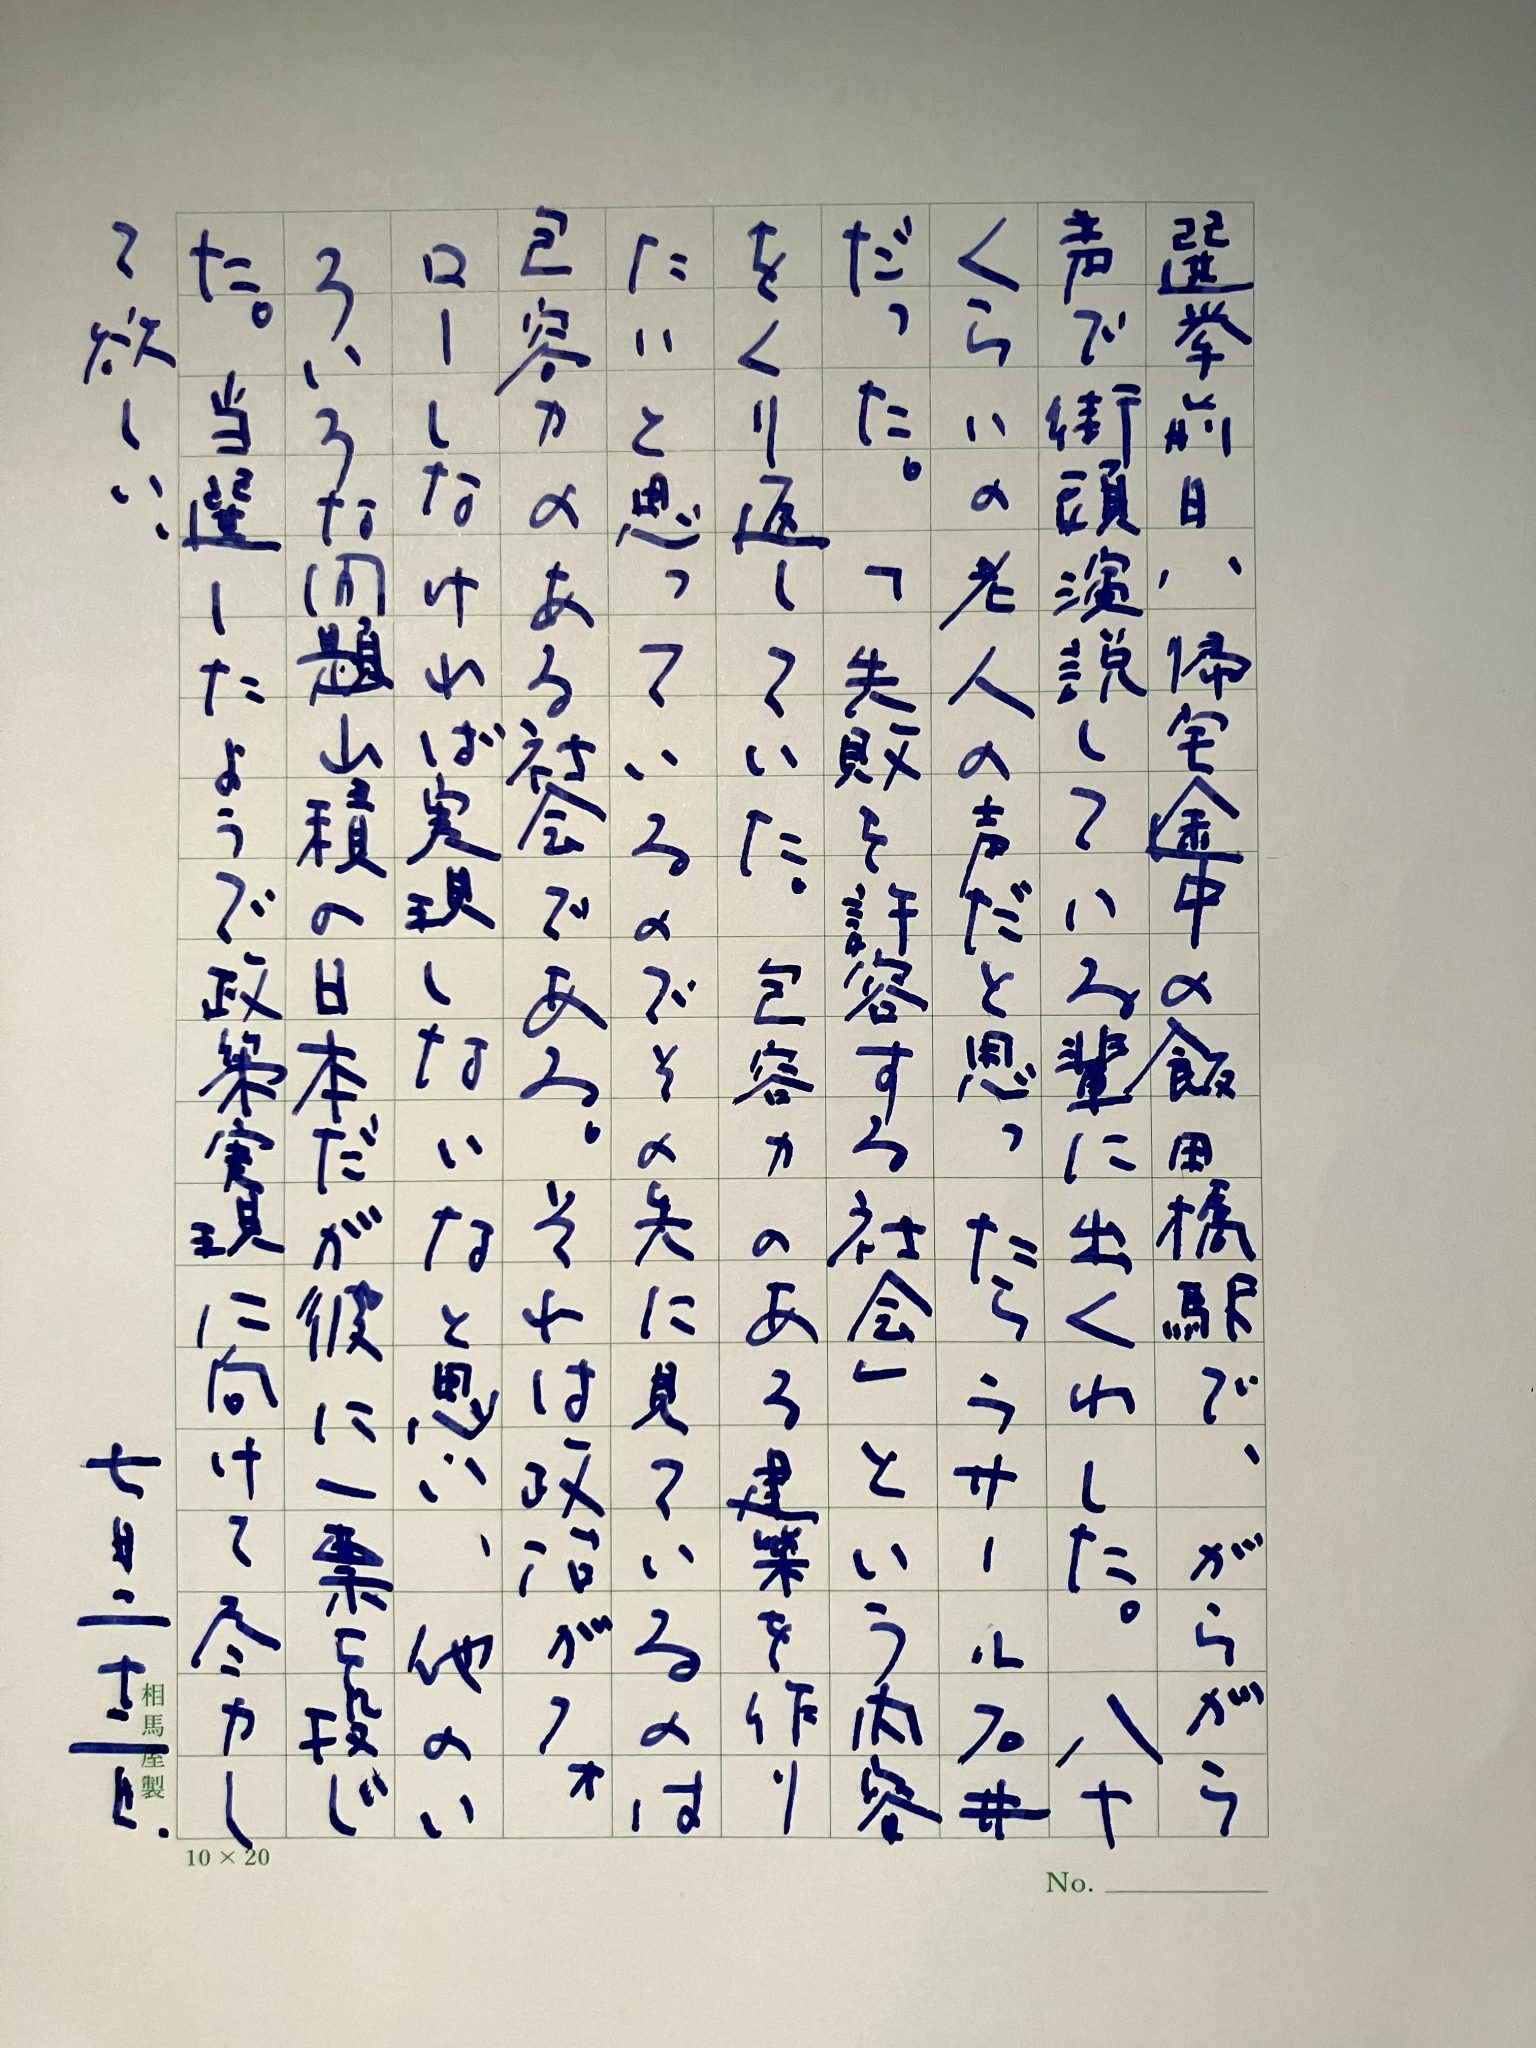 選挙前日、帰宅途中の飯田橋駅で、がらがら
声で街頭演説している輩に出くわした。八十
くらいの老人の声だと思ったらラサール石井
だった。「失敗を許容する社会」という内容
をくり返していた。包容力のある建築を作り
たいと思っているのでその先に見ているのは
包容力のある社会である。それは政治がフォ
ローしなければ実現しないなと思い、他のい
ろいろな問題山積の日本だが彼に一票を投じ
た。当選したようで政策実現に向けて尽力し
て欲しい。
七月二十二日.
相馬屋製
10×20
No.